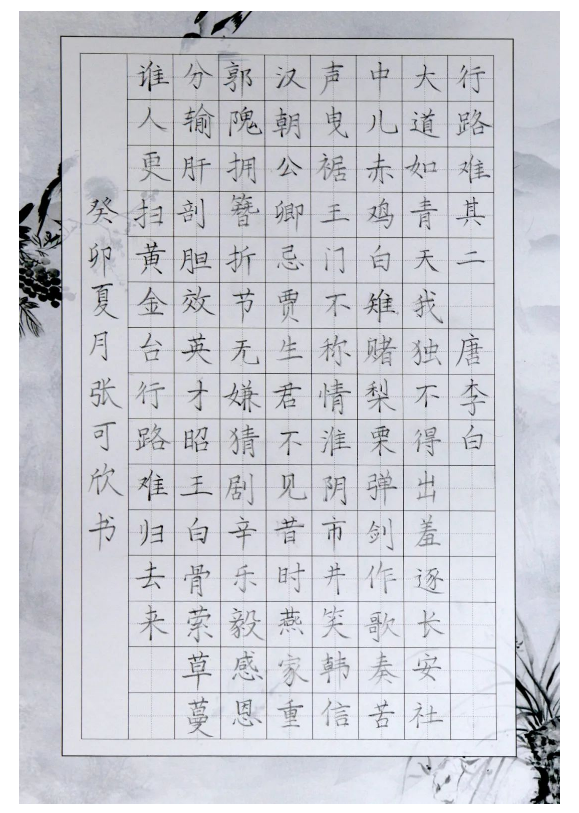 行路难其二 唐李白
大道如青天我独不得出羞逐长安社
中儿赤鸡白雉赌梨栗弹剑作歌奏苦
声曳裾王门不称情淮阴市井笑韩信
汉朝公卿忌贾生君不见昔时燕家重
郭隗拥篲折节无嫌猜剧辛乐毅感恩
分输肝剖胆效英才昭王白骨萦草蔓
谁人更扫黄金台行路难归去来
癸卯夏月张可欣书